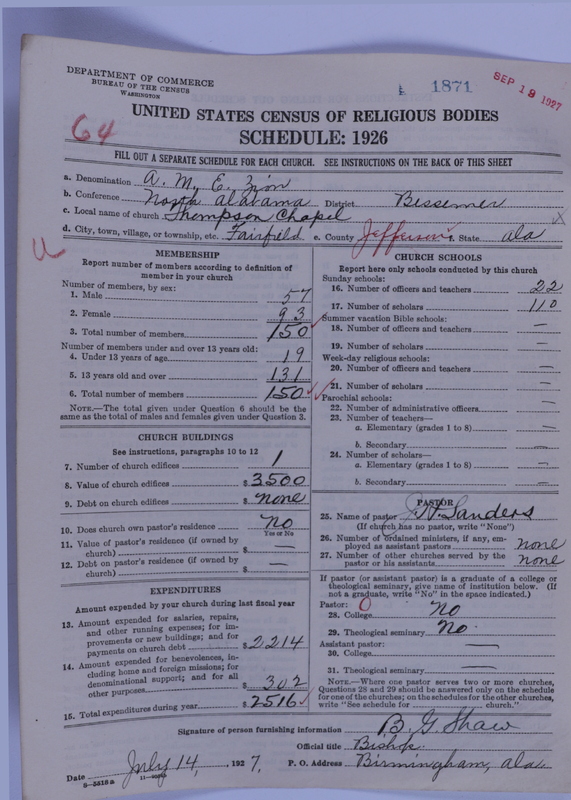 DEPARTMENT OF COMMERCE
BUREAU OF THE CENSUS
WASHINGTON
1871
SEP 19 1927
64
UNITED STATES CENSUS OF RELIGIOUS BODIES
SCHEDULE: 1926
FILL OUT A SEPARATE SCHEDULE FOR EACH CHURCH. SEE INSTRUCTIONS ON THE BACK OF THIS SHEET
a. Denomination A. M. E. Zion
b. Conference North Alabama District Bessemer
c. Local name of church Thompson Chapel
d. City, town, village, or township, etc. Fairfield e. County Jefferson f. State Ala
MEMBERSHIP
Report number of members according to definition of
member in your church
Number of members, by sex:
1. Male 57
2. Female 93
3. Total number of members 150
Number of members under and over 13 years old:
4. Under 13 years of age 19
5. 13 years old and over 131
6. Total number of members 150
NOTE.—The total given under Question 6 should be the
same as the total of males and females given under Question 3.
CHURCH BUILDINGS
See instructions, paragraphs 10 to 12
7. Number of church edifices 1
8. Value of church edifices $ 3500
9. Debt on church edifices $ none
10. Does church own pastor's residence No
Yes or No
11. Value of pastor's residence (if owned by
church) $ —
12. Debt on pastor's residence (if owned by
church) $ —
EXPENDITURES
Amount expended by your church during last fiscal year
13. Amount expended for salaries, repairs,
and other running expenses; for im-
provements or new buildings; and for
payments on church debt $ 2214
14. Amount expended for benevolences, in-
cluding home and foreign missions; for
denominational support; and for all
other purposes $ 302
15. Total expenditures during year $ 2516
CHURCH SCHOOLS
Report here only schools conducted by this church
Sunday schools:
16. Number of officers and teachers 22
17. Number of scholars 110
Summer vacation Bible schools:
18. Number of officers and teachers —
19. Number of scholars —
Week-day religious schools:
20. Number of officers and teachers —
21. Number of scholars —
Parochial schools:
22. Number of administrative officers —
23. Number of teachers—
a. Elementary (grades 1 to 8) —
b. Secondary —
24. Number of scholars—
a. Elementary (grades 1 to 8) —
b. Secondary —
PASTOR
25. Name of pastor Sanders
(If church has no pastor, write "None")
26. Number of ordained ministers, if any, em-
ployed as assistant pastors none
27. Number of other churches served by the
pastor or his assistants none
If pastor (or assistant pastor) is a graduate of a college or
theological seminary, give name of institution below. (If
not a graduate, write "No" in the space indicated.)
Pastor: 0
28. College No
29. Theological seminary No.
Assistant pastor:
30. College —
31. Theological seminary —
NOTE.—Where one pastor serves two or more churches,
Questions 28 and 29 should be answered only on the schedule
for one of the churches; on the schedules for the other churches,
write "See schedule for church."
Signature of person furnishing information B. G Shaw
Official title Bishop.
Date July 14, 1927. P. O. Address Birmingham, Ala